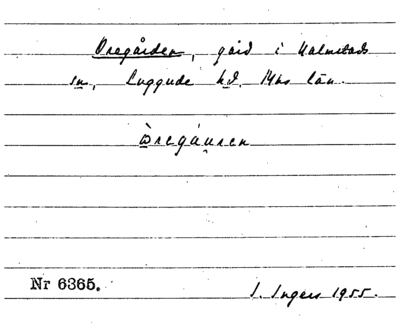 Oregården, gård i Halmstads
sn, Luggude hd. Mhs län.
òregáụren
Nr 6365.
I. Ingers 1955.